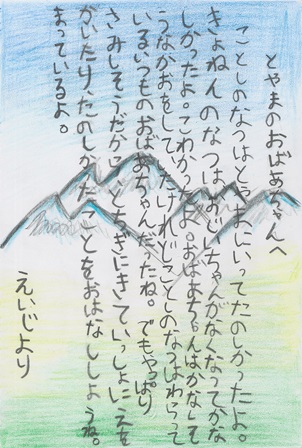 とやまのおばあちゃんへ
ことしのなつはとやまにいってたのしかったよ。
きょねんのなつは、おじいちゃんがなくなってかな
しかったよ。こわかったよ。おばあちゃんはかなしそ
うなかおをしていたけれどことしのなつはわらって
いるいつものおばあちゃんだったね。でもやっぱり
さみしそうだから、とちぎにきていっしょにえを
かいたり、たのしかったことをおはなししようね。
まっているよ。
えいじより